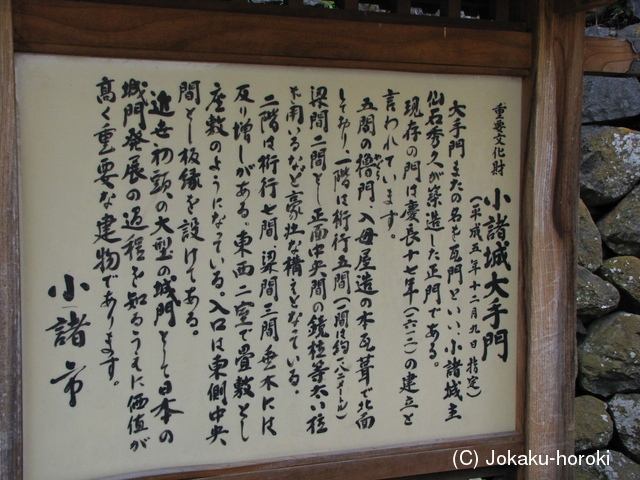 重要文化財
小諸城大手門
(平成五年十二月九日指定)
大手門またの名を瓦門といい、小諸城主
仙石秀久が築造した正門である。
現存の門は慶長十七年(一六一二)の建立と
言われています。
五間の櫓門、入母屋造の本瓦葺で北面
しており、一階は桁行五間(一間は約一.八メートル)
梁間二間とし正面中央間の鏡柱等太い柱
を用いるなど豪壮な構えとなっている。
二階は桁行七間、梁間三間、垂木には
反り増しがある。東西二室で畳敷とし
座敷のようになっている。入口は東側中央
間とし板縁を設けてある。
近世初頭の大型の城門として日本の
城門発展の過程を知るうえに価値が
高く重要な建物であります。
小諸市
(C) Jokaku-horoki